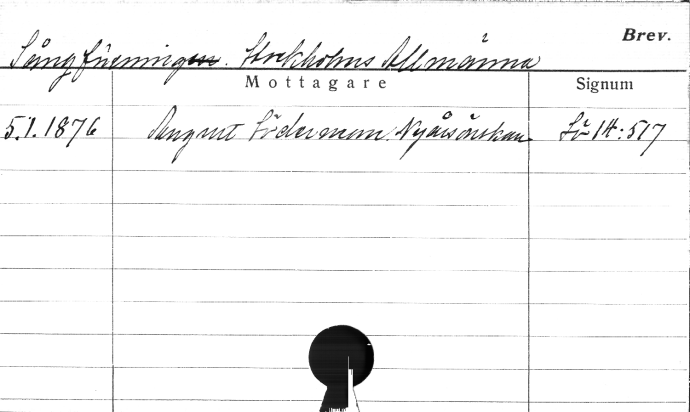 Brev.
Sångföreningen. Stockholms Allmänna
Mottagare Signum
5.1.1876 August Söderman. Nyårsönskan Sö 14:517